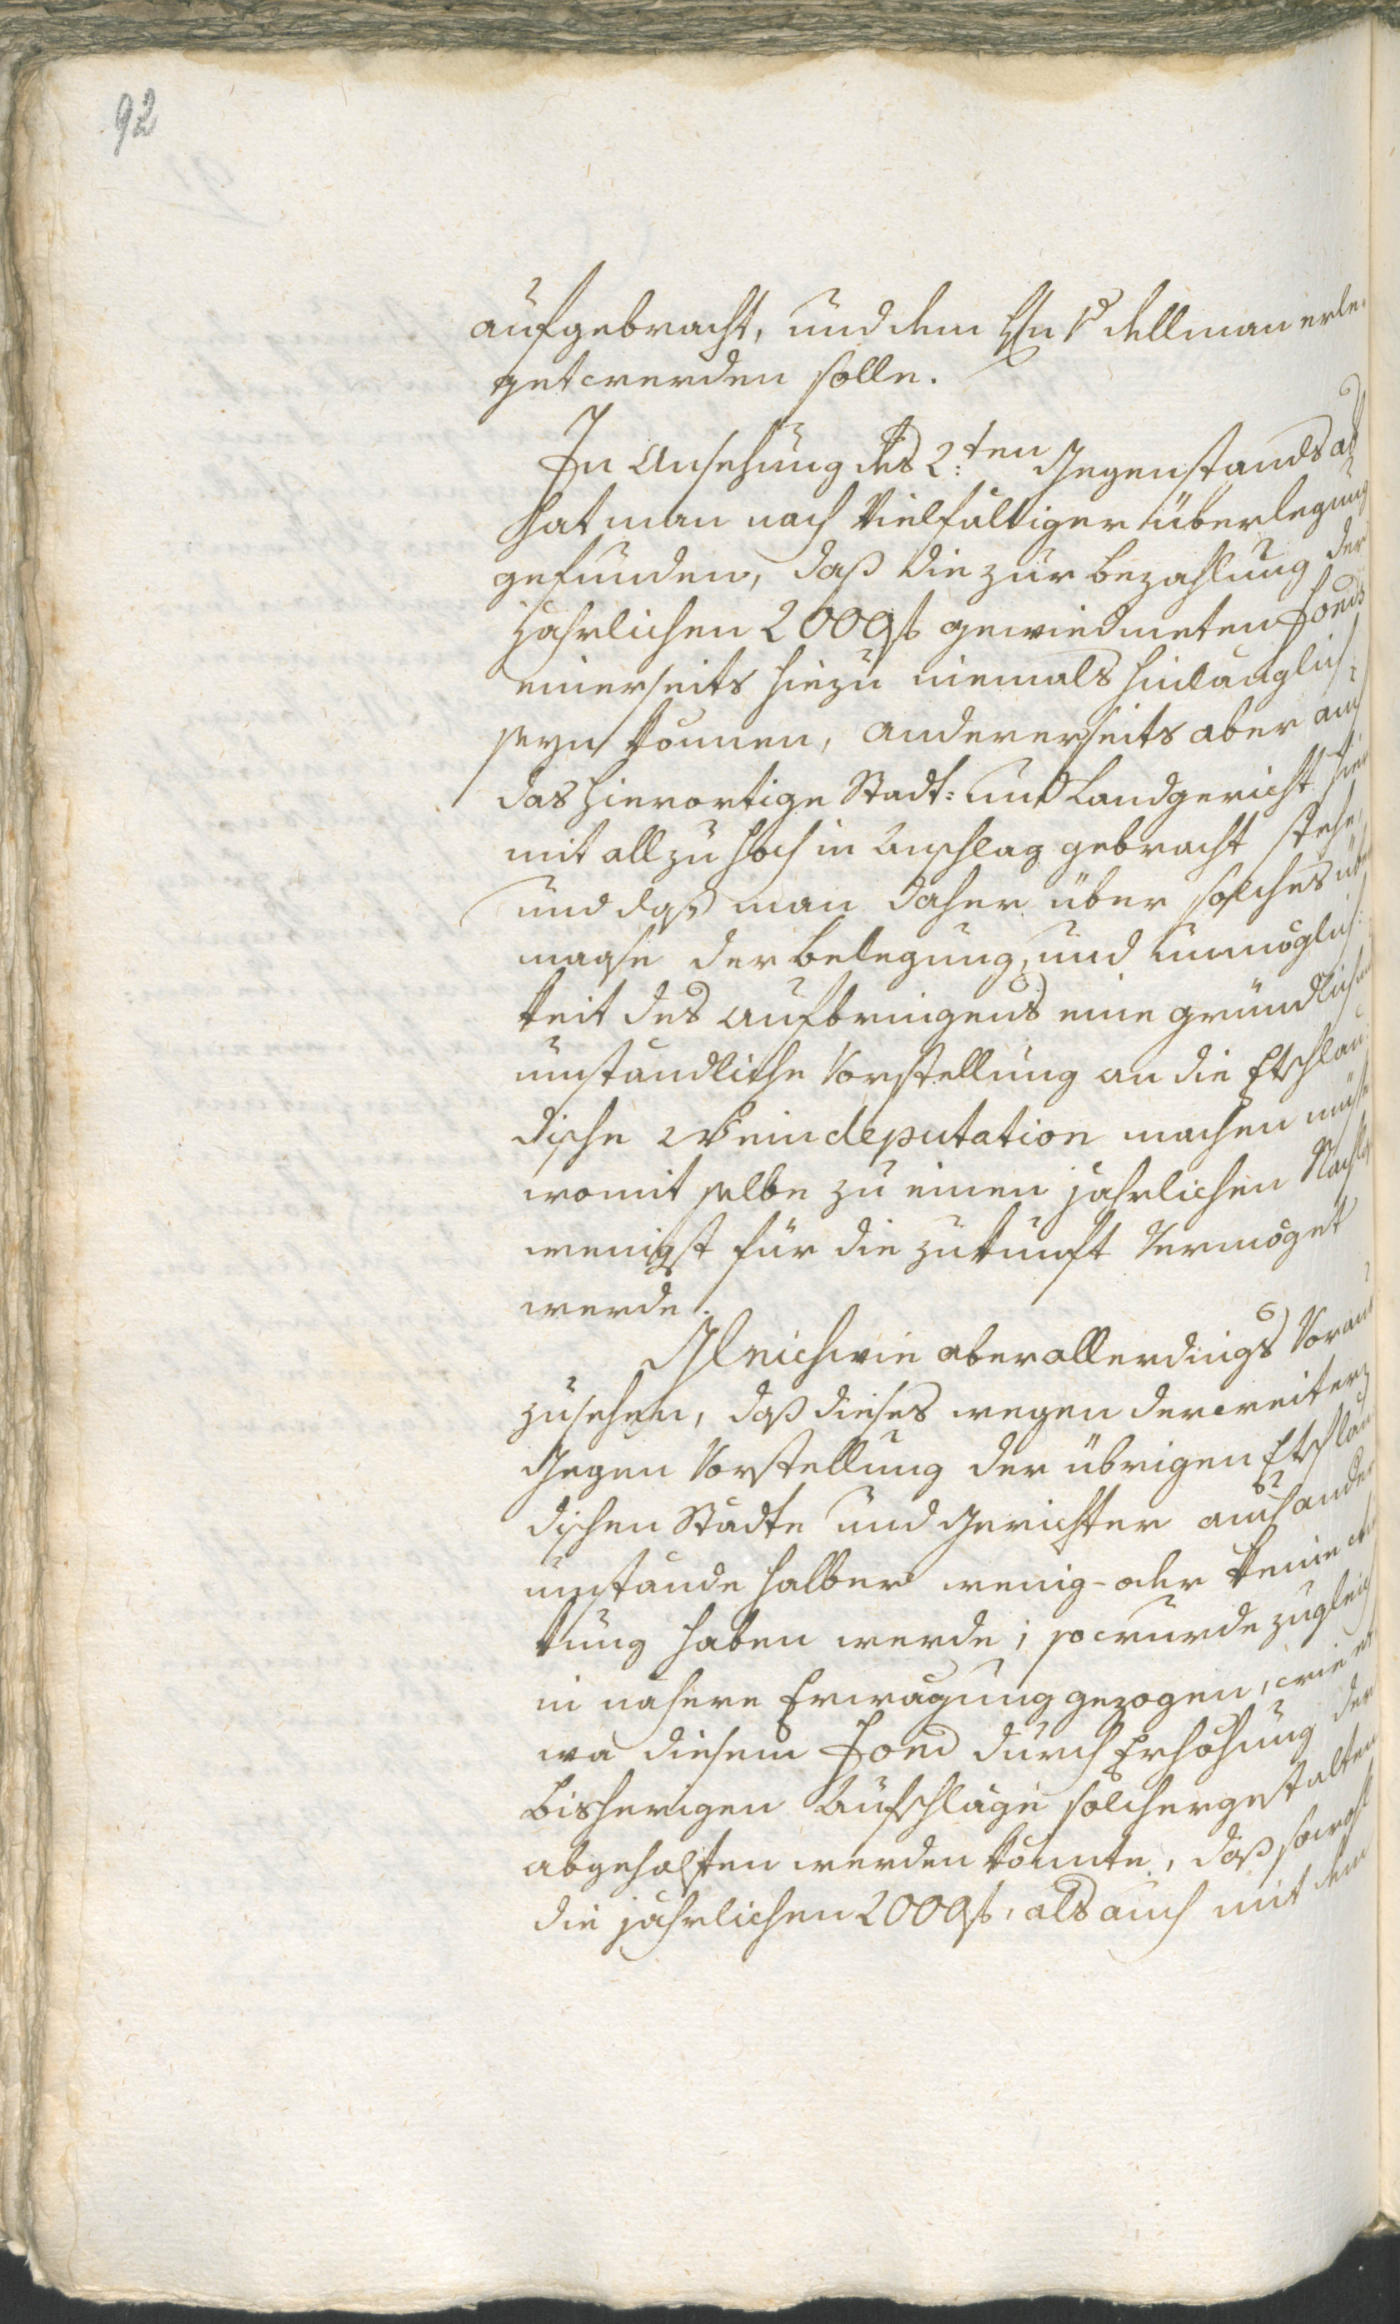 92
aufgebracht, und dem Hn v dellman erle-
get werden solle.
In Ansehung des 2:ten Gegenstands ab
hat man nach Vielfältiger überlegung
gefunden, daß die zur bezahlung der
jährlichen 2000 f gewiedmeten Fonds
einerseits hiezu niemals hinlänglich
seyn können, andererseits aber auch
das hierortige Stadt: und Landgericht hie
mit allzu hoch in Anschlag gebracht stehe,
und daß man daher über solches üb
mase der belegung, und unmöglich:
keit des aufbringens eine gründliche
umständliche Vorstellung an die Etschlän
dische Weindeputation machen müße
womit selbe zu einen jährlichen Nachlaß
wenigst für die zukunft Vermöget
werde.
Gleichwie aber allerdings Voraus
zusehen, daß dieses wegen der weitern
Gegen Vorstellung der übrigen Etschlän
dischen Städte und Gerichter auch ander
umstände halber wenig- oder keine
kung haben werde; so wurde zugleich
in nähere Erwägung gezogen, wie et
wa diesem Fond durch Erhöhung der
bisherigen Aufschläge solchergestalten
abgeholfen werden könnte, daß sowohl
die jährlichen 2000 f, als auch mit dem